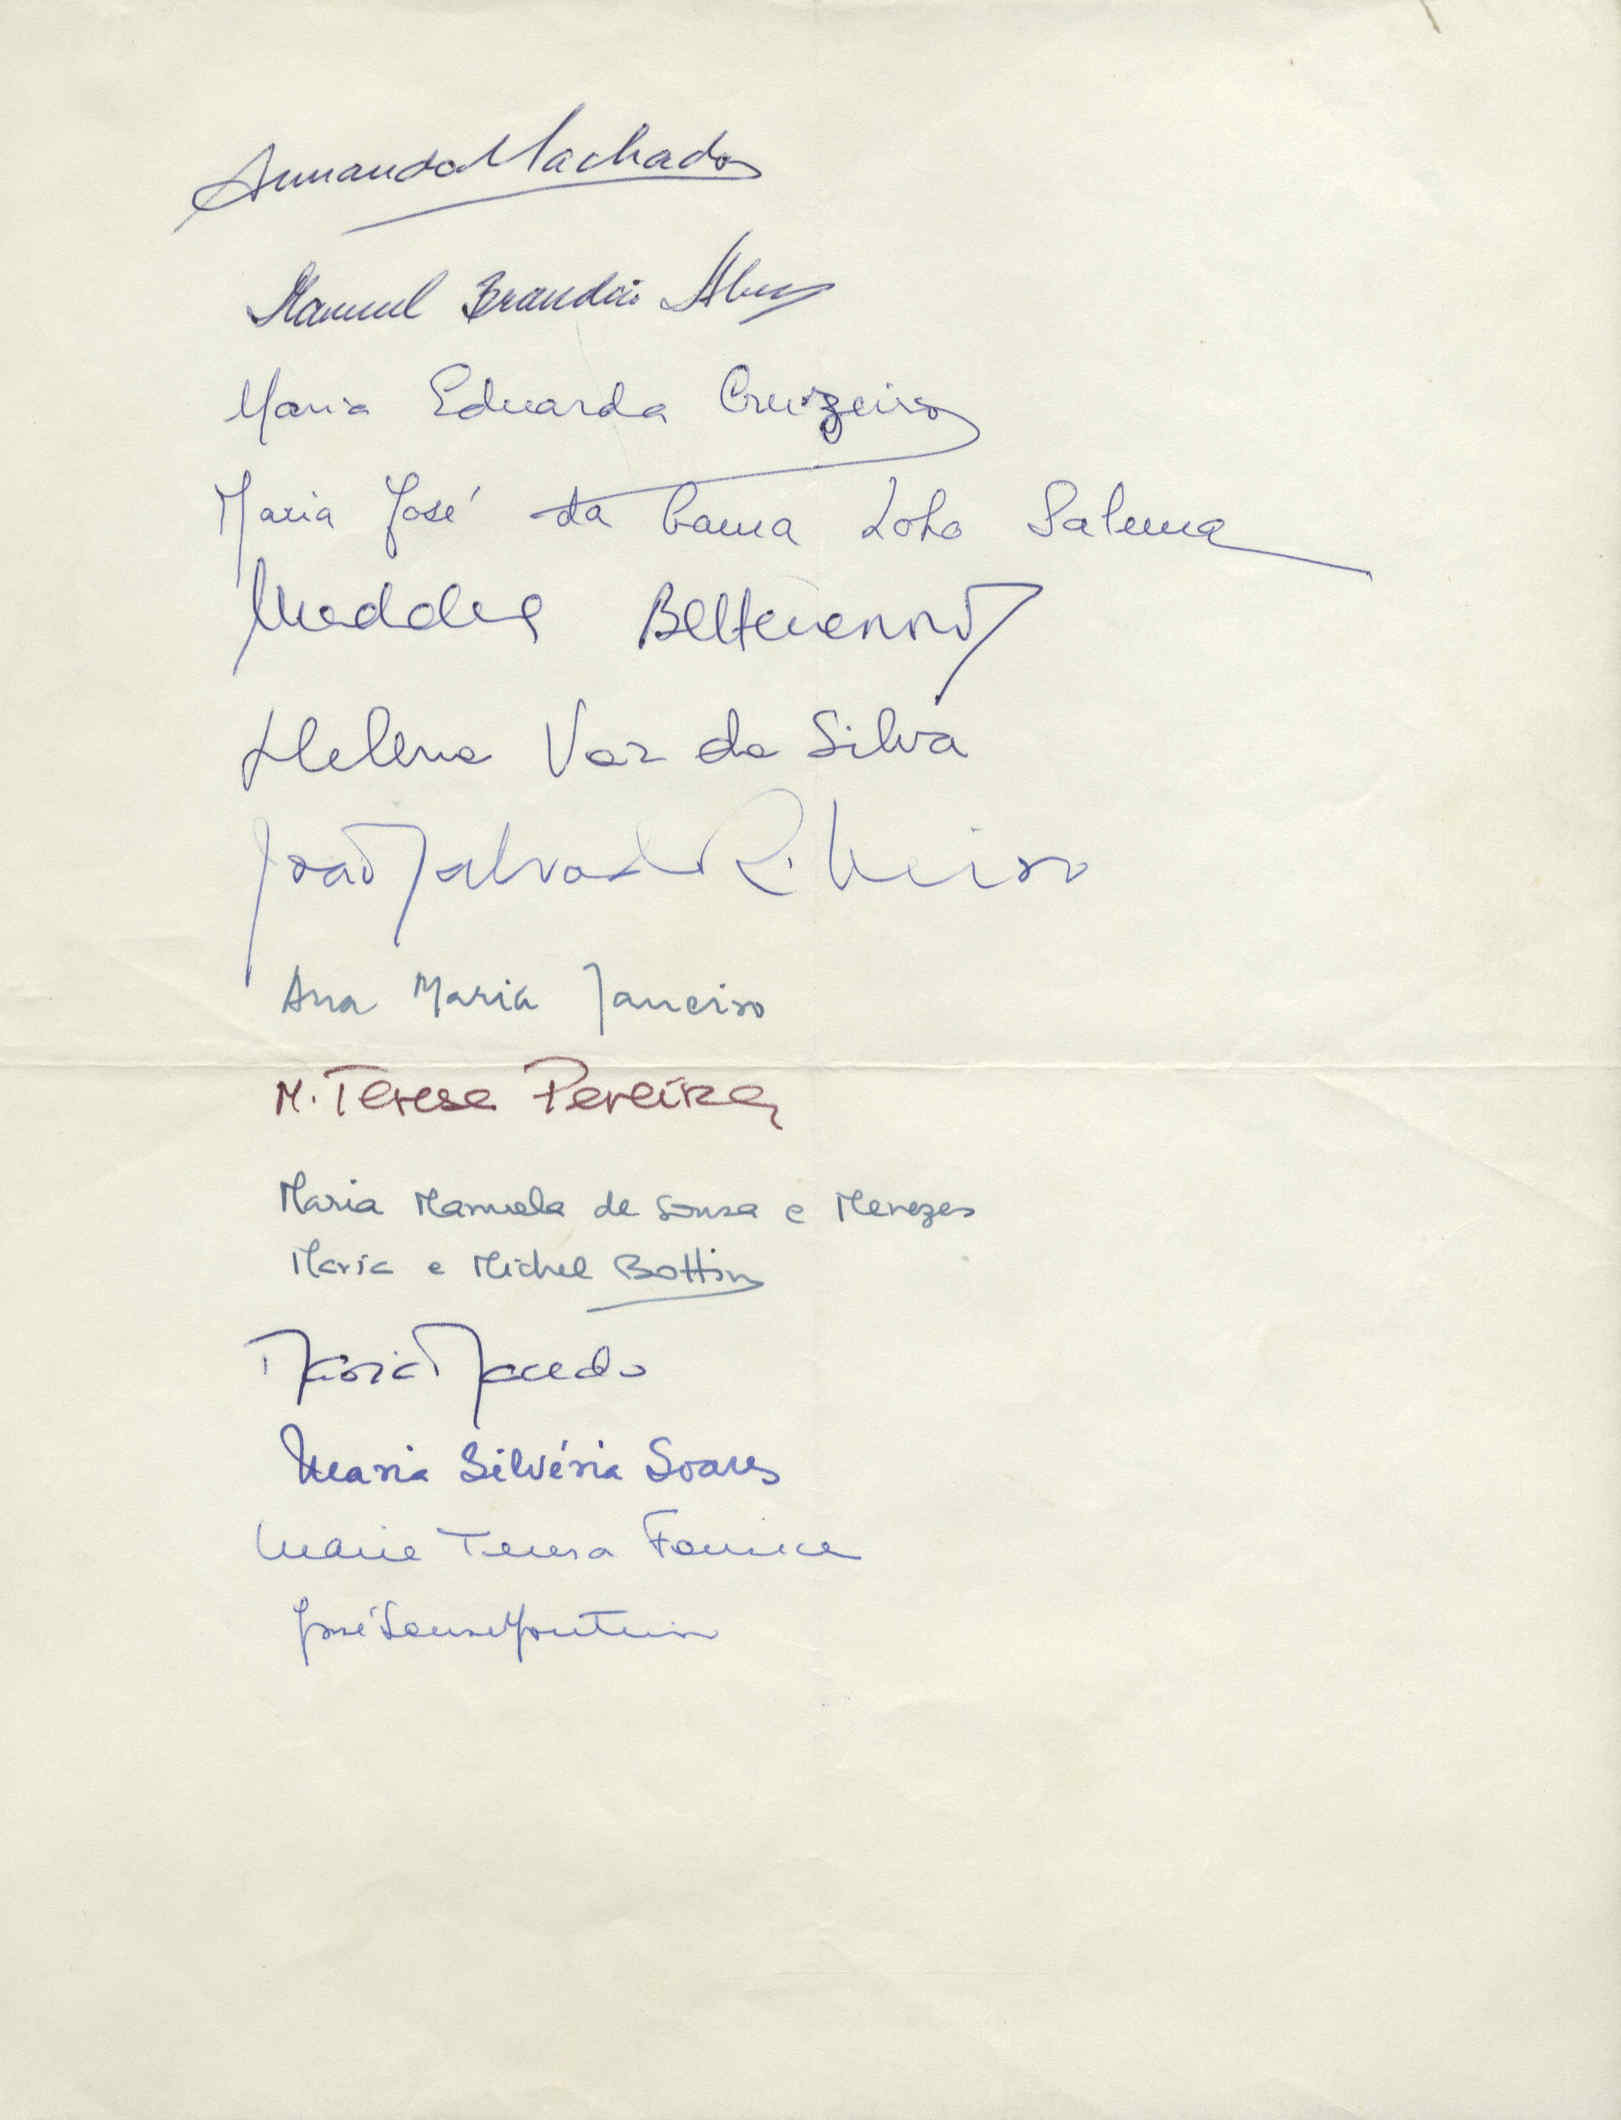 Armando Machado
Manuel Brandão Alves
Maria Eduarda Cruzeiro
Maria José da Gama Lobo Salema
Beltenenort
Helena Vaz da Silva
João Salvado Ribeiro
Ana Maria Janeiro
M. Teresa Pereira
Maria Manuela de Sousa e Menezes
Maria e Michel Bottin
Maria Macedo
Maria Silvéria Soares
Maria Teresa
José Sousa Monteiro